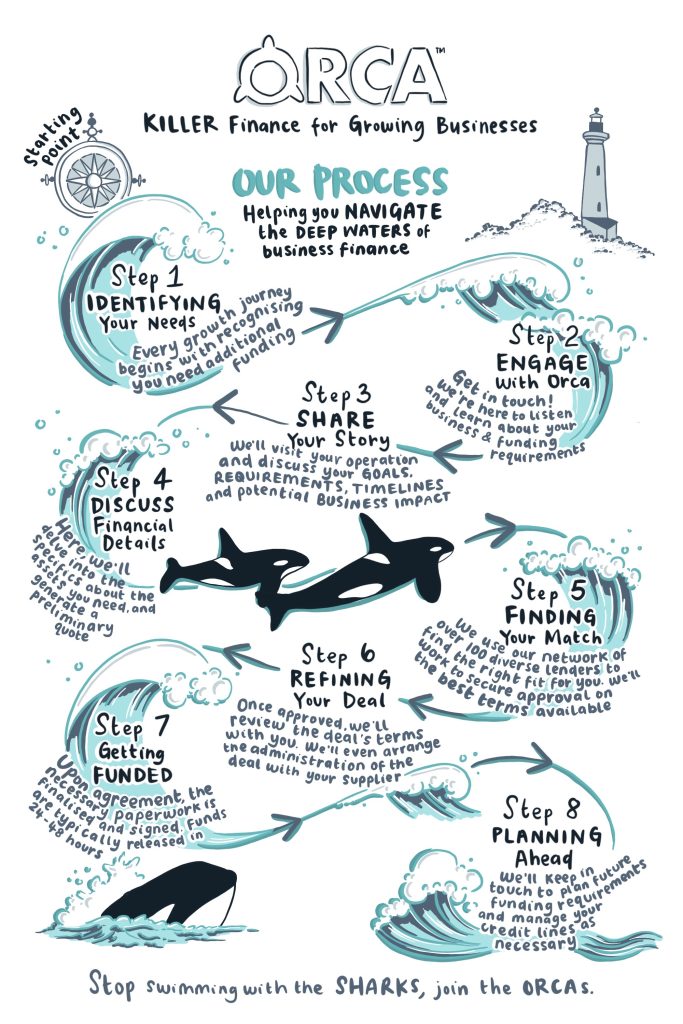 ORCA™
KILLER Finance for Growing Businesses
Starting
point
OUR PROCESS
Helping you NAVIGATE
the DEEP WATERS of
business finance
Step 1
IDENTIFYING
Your Needs
Every growth journey
begins with recognising
you need additional
funding
Step 2
ENGAGE
with Orca
Get in touch!
We're here to listen
and learn about your
business & funding
requirements
Step 3
SHARE
Your Story
We'll visit your operation
and discuss your GOALS,
REQUIREMENTS, TIMELINES
and potential BUSINESS IMPACT
Step 4
DISCUSS
Financial
Details
Here we'll
delve into the
specifics about the
assets you need, and
generate a
preliminary
quote
Step 5
FINDING
Your Match
We use our network of
over 100 diverse lenders to
find the right fit for you. We'll
work to secure approval on
the best terms available
Step 6
REFINING
Your Deal
Once approved, we'll
review the deal's terms
with you. We'll even arrange
the administration of the
deal with your supplier
Step 7
Getting
FUNDED
Upon agreement, the
necessary paperwork is
finalised and signed. Funds
are typically released in
24-48 hours
Step 8
PLANNING
Ahead
We'll keep in
touch to plan future
funding requirements
and manage your
credit lines as
necessary
Stop swimming with the SHARKS, join the ORCAs.